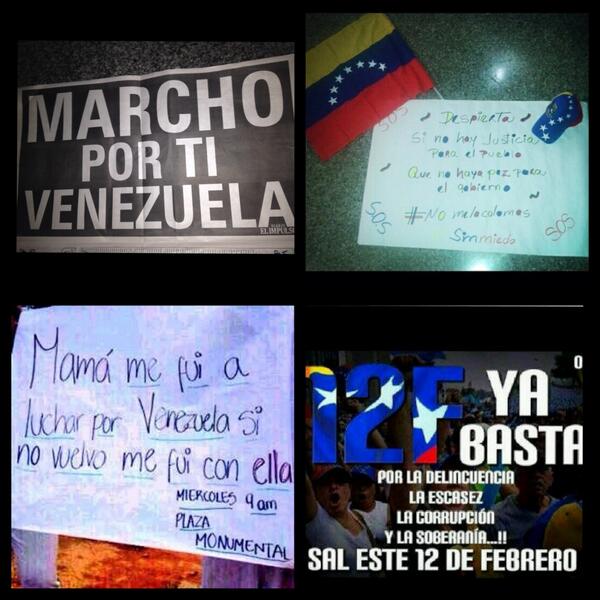 MARCHO
POR TI
VENEZUELA
EL IMPULSO
SOS
Despierta
Si no hay Justicia
Para el Pueblo
Que no haya paz para
el gobierno
SOS
#No melacalomas
SOS
Sinmiedo
Mamá me fui a
luchar por Venezuela si
no vuelvo me fui con ella
MIERCOLES 9am
PLAZA
MONUMENTAL
12F YA
BASTA
POR LA DELINCUENCIA
LA ESCASEZ
LA CORRUPCIÓN
Y LA SOBERANÍA...!!
SAL ESTE 12 DE FEBRERO